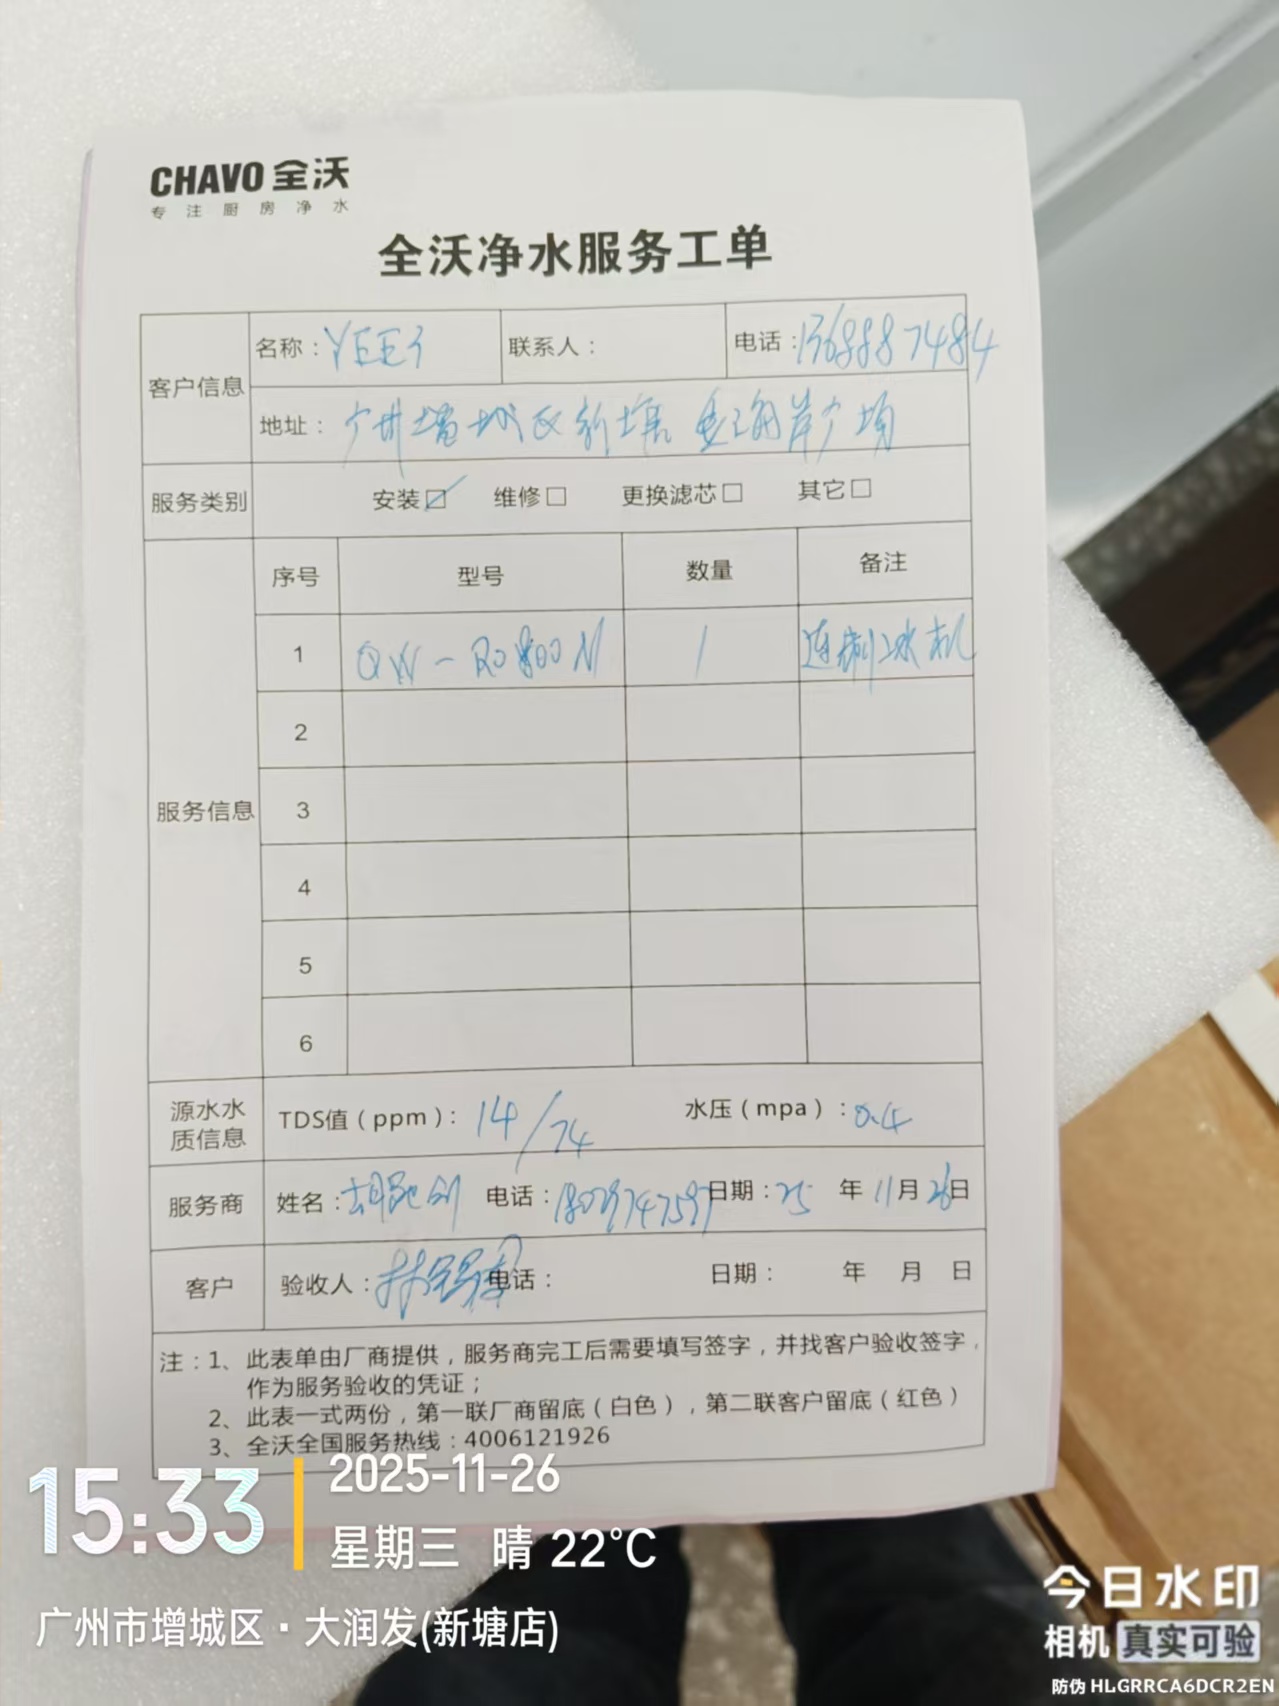 CHAVO 全沃
专注厨房净水
全沃净水服务工单
客户信息
名称：YEE3 联系人： 电话：13688887484
地址：广州增城区新塘 广场
服务类别 安装☑ 维修□ 更换滤芯□ 其它□
服务信息
序号 型号 数量 备注
1 QW-RO800N 1 连制冰机
2
3
4
5
6
源水水质信息 TDS值（ppm）：14/74 水压（mpa）：0.4
服务商 姓名： 电话：18029747597 日期：25 年 11 月 26 日
客户 验收人： 电话： 日期： 年 月 日
注：1、此表单由厂商提供，服务商完工后需要填写签字，并找客户验收签字，
作为服务验收的凭证；
2、此表一式两份，第一联厂商留底（白色），第二联客户留底（红色）
3、全沃全国服务热线：4006121926
15:33
2025-11-26
星期三 晴 22°C
广州市增城区·大润发(新塘店)
今日水印
相机 真实可验
防伪 HLGRRCA6DCR2EN